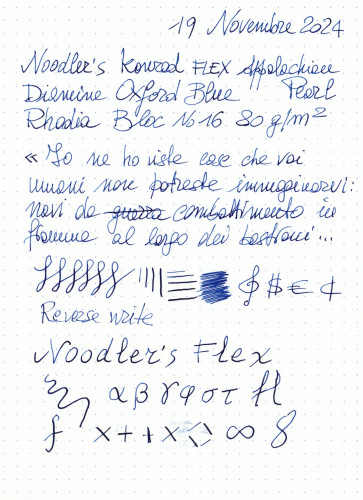 19 Novembre 2024
Noodler's Konrad FLEX Appalachian
Diamine Oxford Blue Pearl
Rhodia Bloc No 16 80 g/m²
« Io ne ho viste cose che voi
umani non potreste immaginarvi:
navi da guerra combattimento in
fiamme al largo dei bastioni...
ʃʃʃʃʃʃʃ |||| 𝄞 $ € ¢
Reverse write
Noodler's Flex
α β γ φ σ τ fl
f x + + x <> ∞ 8